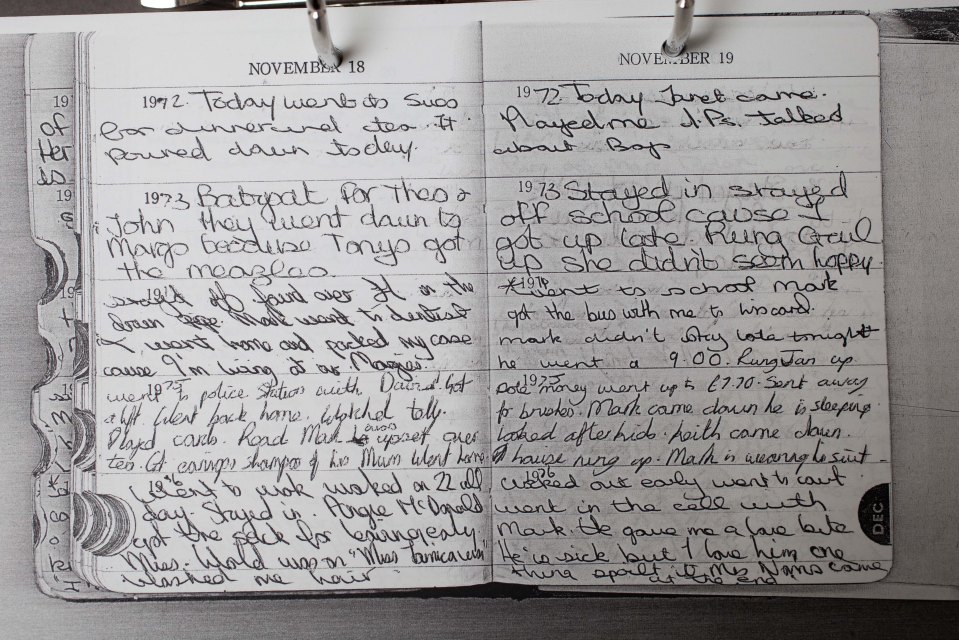 NOVEMBER 18
1972. Today went to Sues
for dinner and tea. It
poured down today.
1973 Babysat for Theo &
John they went down to
Margo because Tonys got
the measles
1974
down Mark went to dentist
I went home and packed my case
cause I'm living at as Margies.
1975
went to police station with David Got
a lift. Went back home. Watched telly.
Played cards. Read Mark upset over
tea. Got earings shampoo of his Mum went home
1976
Went to work worked on 22 all
day. Stayed in. Angie McDonald
got the sack for leaving early
Miss. World was on "Miss Jamaica won"
washed me hair
NOVEMBER 19
1972. Today Janet came.
Played me J.Ps. talked
about Bop
1973 Stayed in stayed
off school cause I
got up late. Rung Gail
up she didn't seem happy
1974
went to school Mark
got the bus with me to
Mark didn't stay late tonight
he went a 9.00. Rung Jan up
1975
money went up to £7.70. Sent away
for brushes. Mark came down he is sleeping
Looked after kids. Keith came down.
house rung up. Mark is wearing suit
1976
Worked out early went to court
went in the cell with
Mark. He gave me a love bite
He is sick but I love him one
thing spoilt it Mrs Nanns came
at the end
DEC